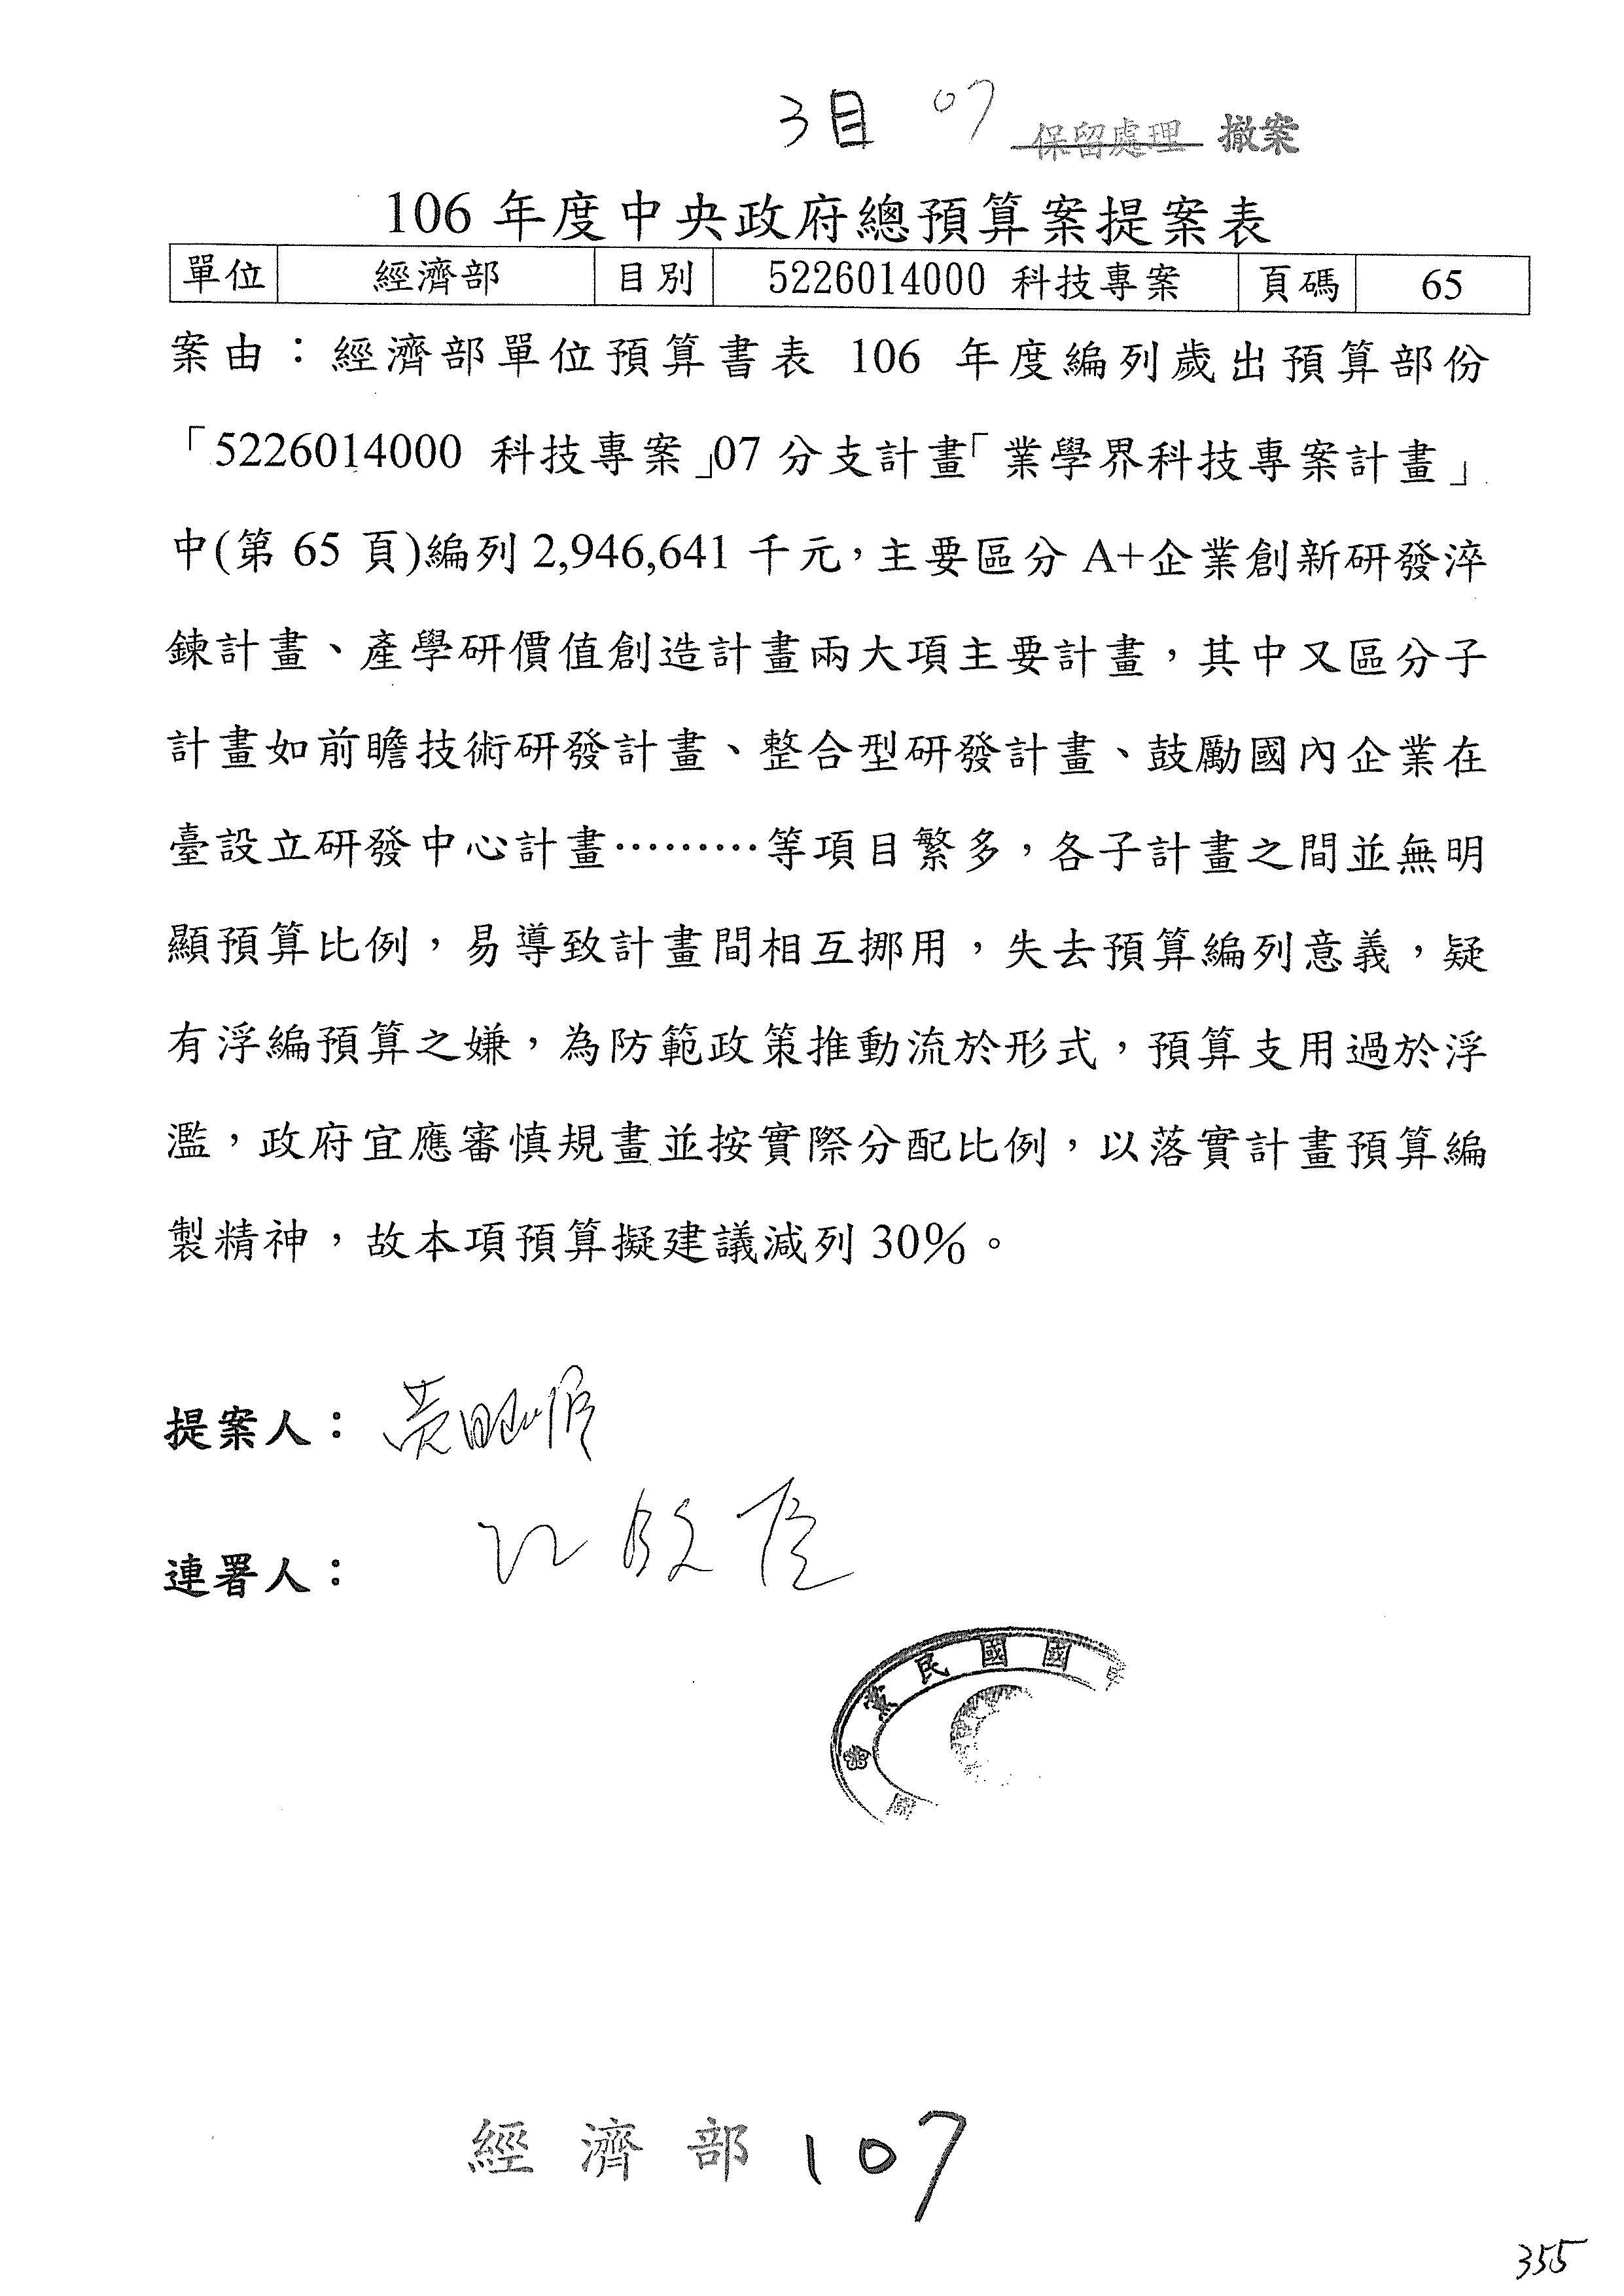 3目 07 保留處理 撤案
106年度中央政府總預算案提案表
單位 經濟部 目別 5226014000 科技專案 頁碼 65
案由：經濟部單位預算書表 106 年度編列歲出預算部份
「5226014000 科技專案」07分支計畫「業學界科技專案計畫」
中(第 65 頁)編列 2,946,641 千元，主要區分 A+企業創新研發淬
鍊計畫、產學研價值創造計畫兩大項主要計畫，其中又區分子
計畫如前瞻技術研發計畫、整合型研發計畫、鼓勵國內企業在
臺設立研發中心計畫………等項目繁多，各子計畫之間並無明
顯預算比例，易導致計畫間相互挪用，失去預算編列意義，疑
有浮編預算之嫌，為防範政策推動流於形式，預算支用過於浮
濫，政府宜應審慎規畫並按實際分配比例，以落實計畫預算編
製精神，故本項預算擬建議減列 30%。
提案人：
連署人：江啟臣
國國民黨
經濟部 107
355